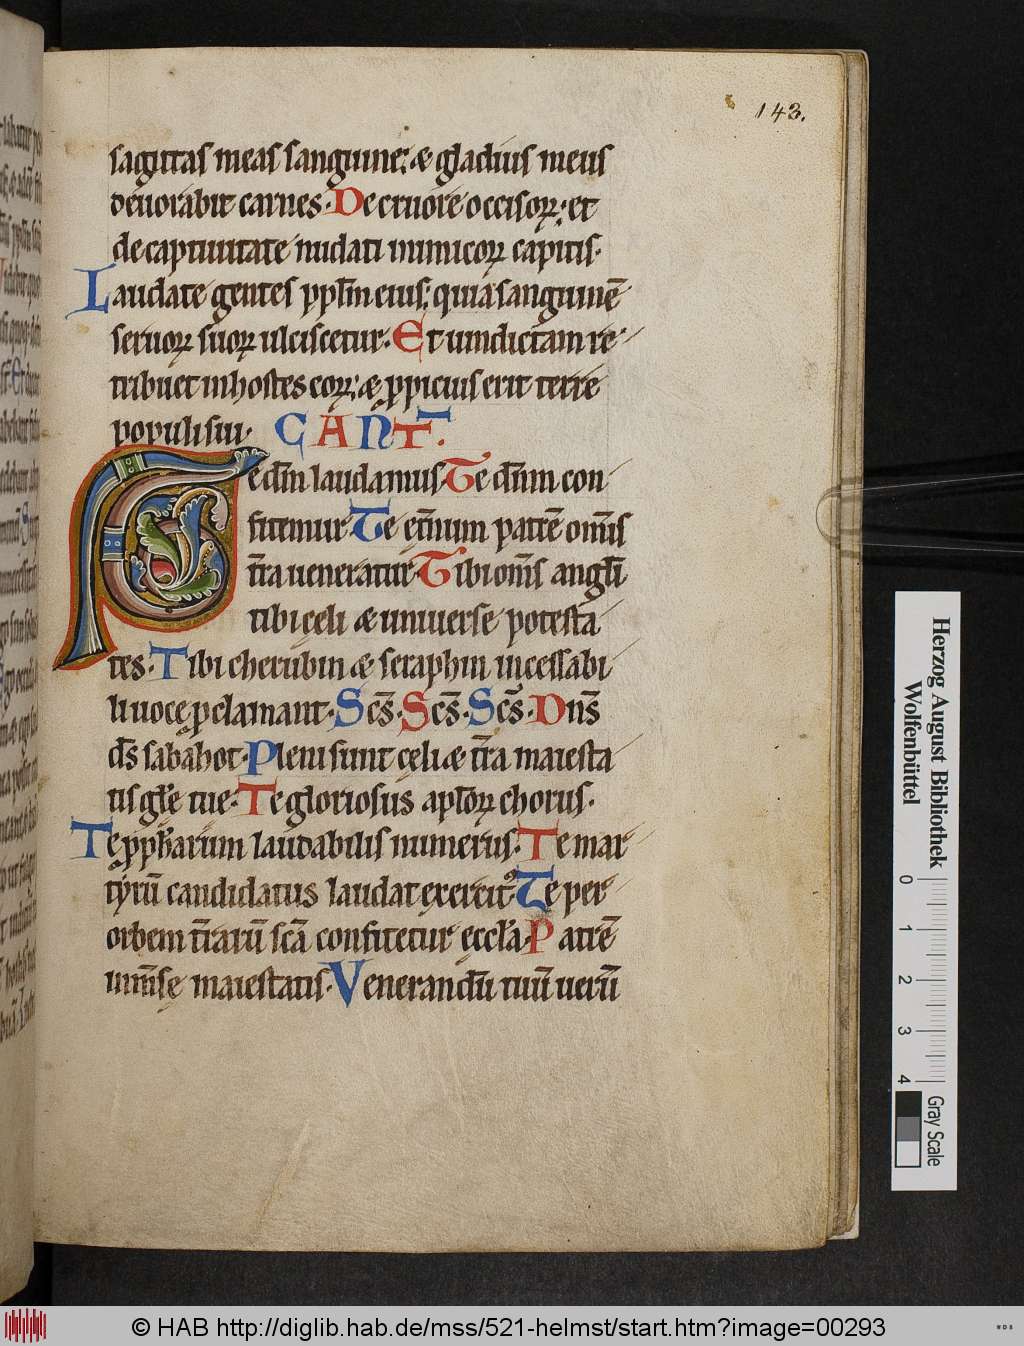 143.
sagittas meas sanguine; & gladius meus
deuorabit carnes. De cruore occisoꝝ; et
de captiuitate nudati inimicoꝝ capitis.
Laudate gentes ppl̄m eius; quia sanguinē
seruoꝝ suoꝝ ulciscetur. Et uindictam re
tribuet in hostes eoꝝ; & ꝓpicius erit terre
populi sui. CANT.
Te dm̄ laudamus. Te dn̄m con
fitemur. Te et̄num patrē om̄is
t̄ra ueneratur. Tibi om̄s angl̄i
tibi cęli & uniuerse potesta
tes. Tibi cherubin & seraphin incessabi
li uoce ꝓclamant. Sc̄s. Sc̄s. Sc̄s. Dn̄s
ds̄ sabahot. Pleni sunt cęli & t̄ra maiesta
tis gl̄e tue. Te gloriosus apl̄oꝝ chorus.
Te ꝓph̄arum laudabilis numerus. Te mar
tyrū candidatus laudat exercitꝰ. Te per
orbem t̄rarū sc̄a confitetur eccl̄a. Patrē
inm̄sę maiestatis. Venerandū tuū uerū
Herzog August Bibliothek
Wolfenbüttel
0 1 2 3 4
Gray Scale
© HAB http://diglib.hab.de/mss/521-helmst/start.htm?image=00293